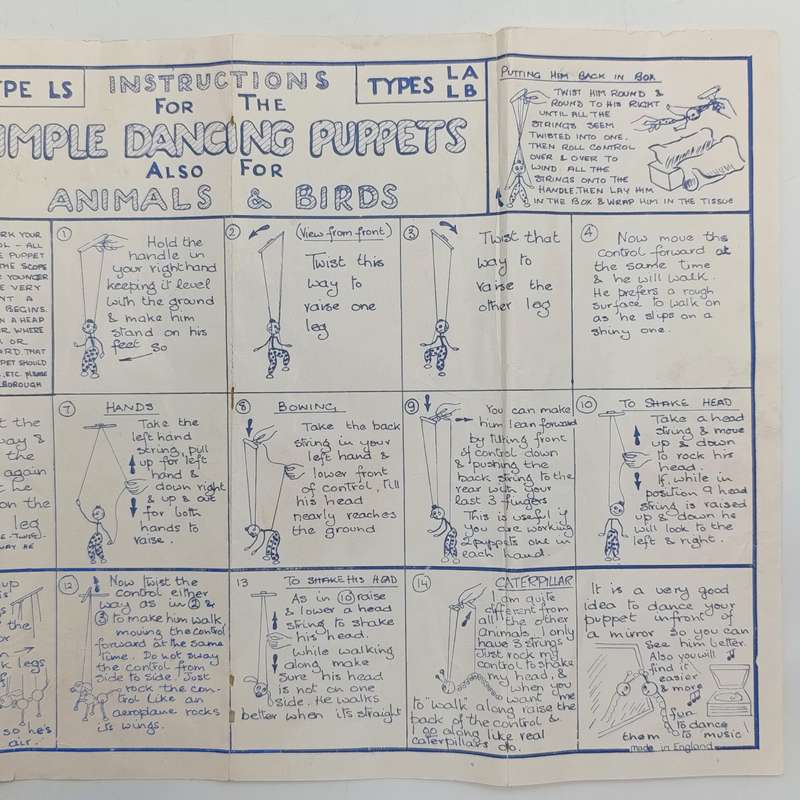 TYPE LS
INSTRUCTIONS
FOR THE
SIMPLE DANCING PUPPETS
ALSO FOR
ANIMALS & BIRDS
TYPES LA
LB
PUTTING HIM BACK IN BOX
TWIST HIM ROUND &
ROUND TO HIS RIGHT
UNTIL ALL THE
STRINGS SEEM
TWISTED INTO ONE.
THEN ROLL CONTROL
OVER & OVER TO
WIND ALL THE
STRINGS ONTO THE
HANDLE. THEN LAY HIM
IN THE BOX & WRAP HIM IN THE TISSUE
YOUR
ALL
PUPPET
THE SCOPE
YOUNGER
VERY
A
BEGINS.
A HEAP
WHERE
OR
THAT
SHOULD
ETC. PLEASE
1
Hold the
handle in
your right hand
keeping it level
with the ground
& make him
stand on his
feet so
2
(View from front)
Twist this
way to
raise one
leg
3
Twist that
way to
raise the
other leg
4
Now move the
control forward at
the same time
& he will walk.
He prefers a rough
surface to walk on
as he slips on a
shiny one.
the
&
the
again
he
on the
leg
HE
7
HANDS
Take the
left hand
string, pull
up for left
hand &
down right
& up & out
for both
hands to
raise.
8
BOWING
Take the back
string in your
left hand &
lower front
of control, till
his head
nearly reaches
the ground
9
You can make
him lean forward
by tilting front
of control down
& pushing the
back string to the
rear with your
last 3 fingers
This is useful if
you are working
2 puppets one in
each hand.
10
TO SHAKE HEAD
Take a head
string & move
up & down
to rock his
head.
If while in
position 9 head
string is raised
up & down he
will look to the
left & right.
up
the
or
legs
so he's
air.
12
Now twist the
control either
way as in 2 &
3 to make him walk
moving the control
forward at the same
time. Do not sway
the control from
side to side. Just
rock the con-
trol like an
aeroplane rocks
its wings.
13
TO SHAKE HIS HEAD
As in 10 raise
& lower a head
string to shake
his head.
while walking
along make
sure his head
is not on one
side. He walks
better when it's straight
14
CATERPILLAR
I am quite
different from
all the other
animals. I only
have 3 strings
Just rock my
control to shake
my head, &
when you
want me
to "walk" along raise the
back of the control &
I go along like real
caterpillars do.
It is a very good
idea to dance your
puppet infront of
a mirror so you can
see him better.
Also you will
find it
easier
& more
fun
to dance
them to music
made in England